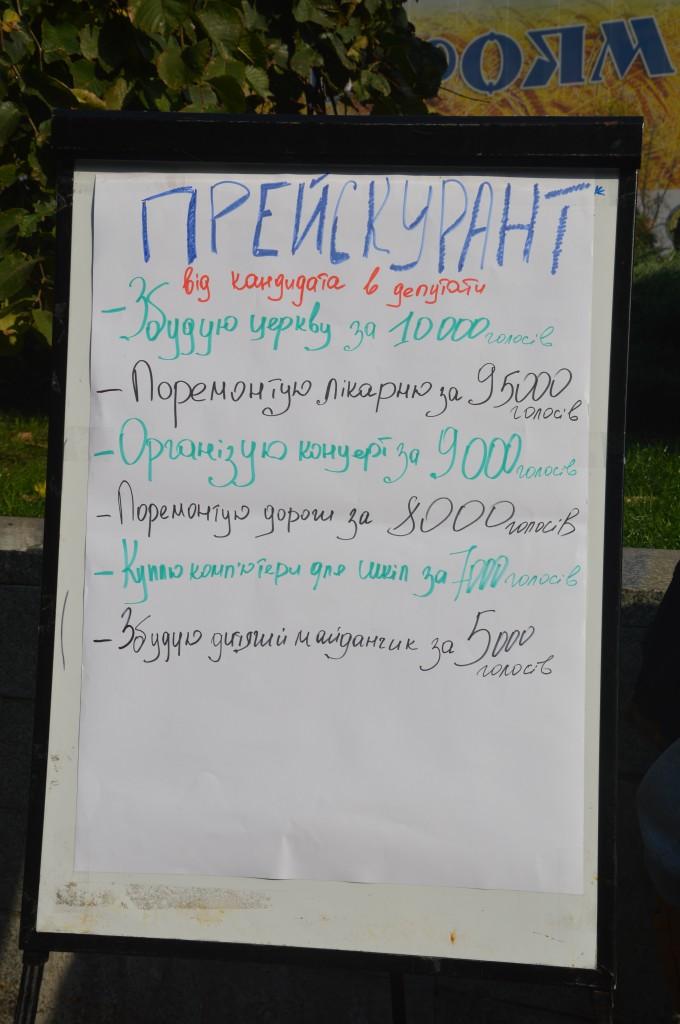 МЯО
ПРЕЙСКУРАНТ
від кандидата в депутати
- Збудую церкву за 10000 голосів
- Поремонтую лікарню за 95000 голосів
- Організую концерт за 9000 голосів
- Поремонтую дороги за 8000 голосів
- Куплю комп'ютери для шкіл за 7000 голосів
- Збудую дитячий майданчик за 5000 голосів